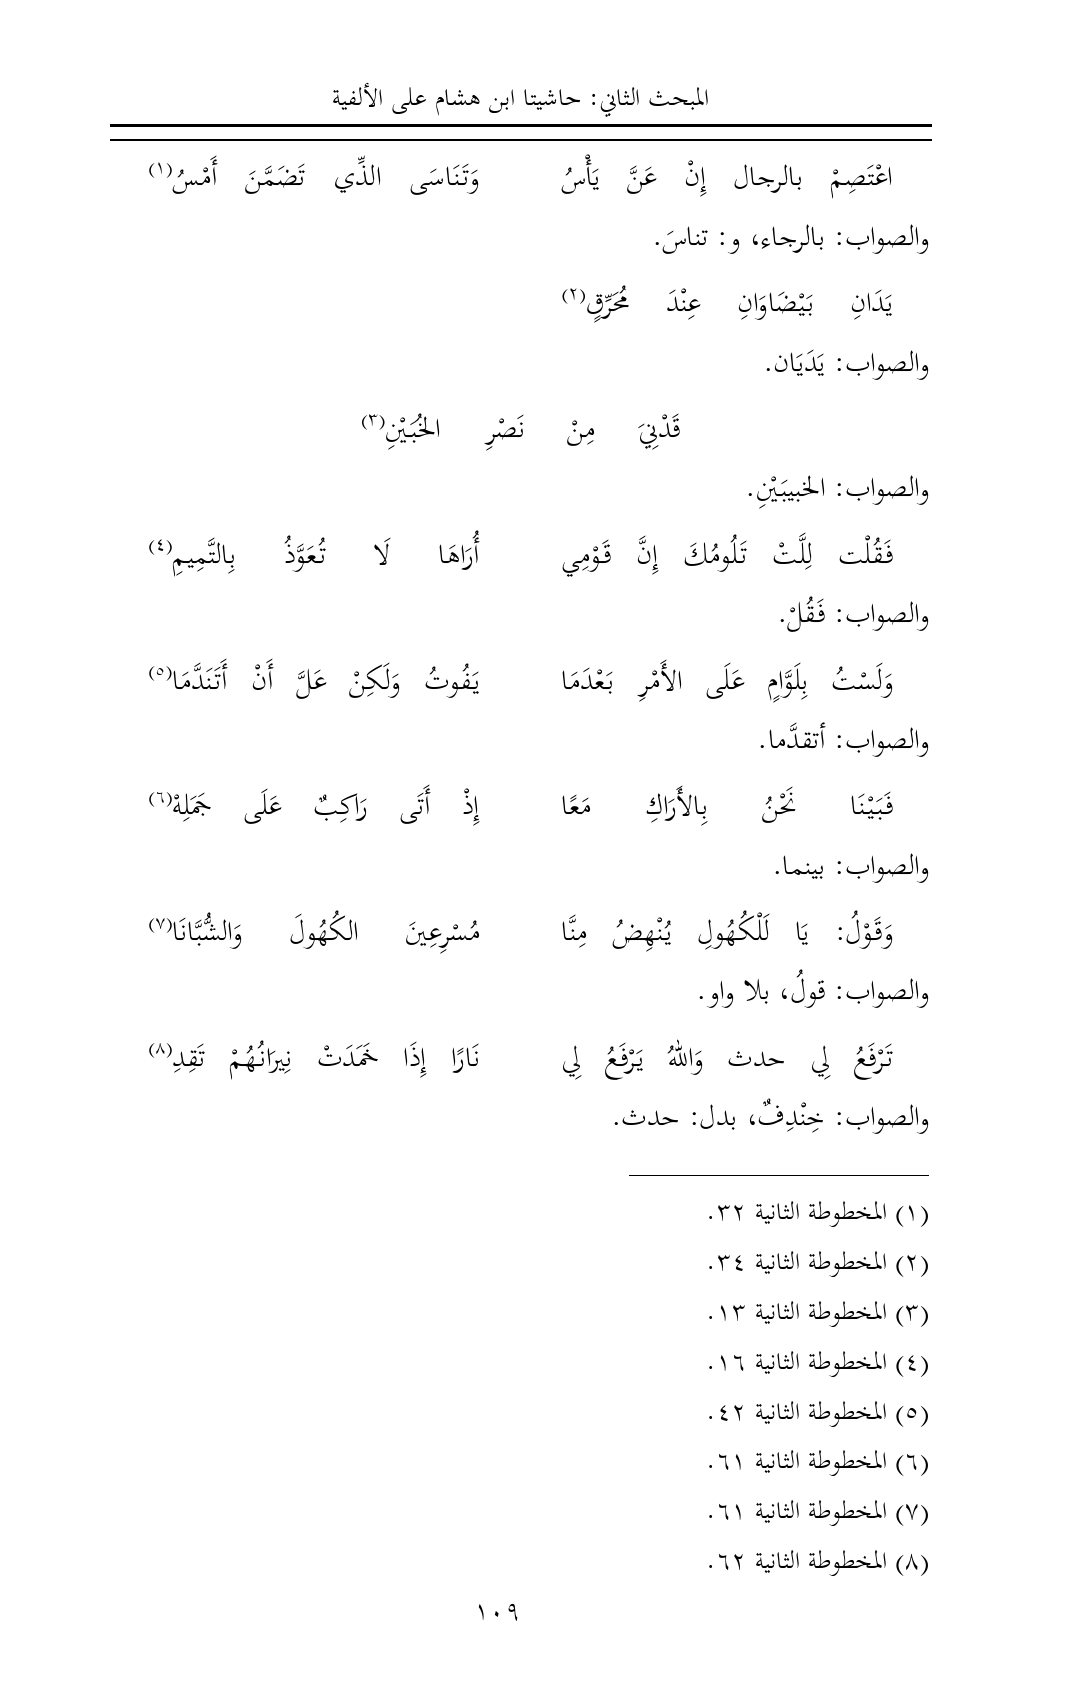 المبحث الثاني: حاشيتا ابن هشام على الألفية
اعْتَصِمْ بالرجال إِنْ عَنَّ يَأْسُ وَتَنَاسَى الذِّي تَضَمَّنَ أَمْسُ(١)
والصواب: بالرجاء، و: تناسَ.
يَدَانِ بَيْضَاوَانِ عِنْدَ مُحَرِّقٍ(٢)
والصواب: يَدَيَان.
قَدْنِيَ مِنْ نَصْرِ الخُبَيْنِ(٣)
والصواب: الخبيبَيْنِ.
فَقُلْت لِلَّتْ تَلُومُكَ إِنَّ قَوْمِي أُرَاهَا لَا تُعَوَّذُ بِالتَّمِيمِ(٤)
والصواب: فَقُلْ.
وَلَسْتُ بِلَوَّامٍ عَلَى الأَمْرِ بَعْدَمَا يَفُوتُ وَلَكِنْ عَلَّ أَنْ أَتَنَدَّمَا(٥)
والصواب: أتقدَّما.
فَبَيْنَا نَحْنُ بِالأَرَاكِ مَعًا إِذْ أَتَى رَاكِبٌ عَلَى جَمَلِهْ(٦)
والصواب: بينما.
وَقَوْلُ: يَا لَلْكُهُولِ يُنْهِضُ مِنَّا مُسْرِعِينَ الكُهُولَ وَالشُّبَّانَا(٧)
والصواب: قولُ، بلا واو.
تَرْفَعُ لِي حدث وَاللهُ يَرْفَعُ لِي نَارًا إِذَا خَمَدَتْ نِيرَانُهُمْ تَقِدِ(٨)
والصواب: خِنْدِفٌ، بدل: حدث.
(١) المخطوطة الثانية ٣٢.
(٢) المخطوطة الثانية ٣٤.
(٣) المخطوطة الثانية ١٣.
(٤) المخطوطة الثانية ١٦.
(٥) المخطوطة الثانية ٤٢.
(٦) المخطوطة الثانية ٦١.
(٧) المخطوطة الثانية ٦١.
(٨) المخطوطة الثانية ٦٢.
١٠٩